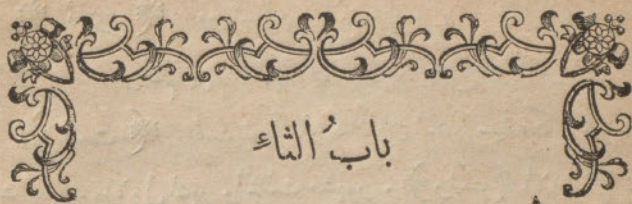 بابُ الثاء